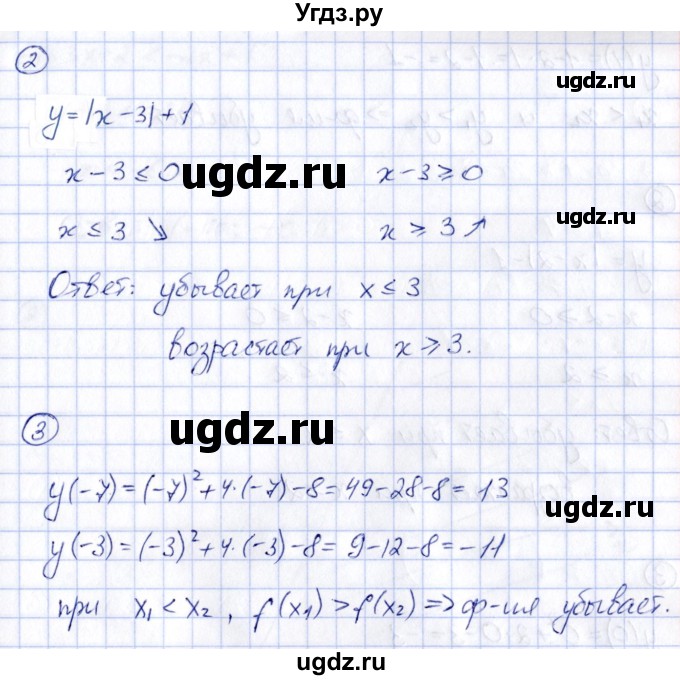 Угдз.ру
2
y=|x-3|+1
x-3≤0 x-3≥0
ugdz.ru ugdz.ru
x≤3 ↘ x≥3 ↗
Ответ: убывает при x≤3
возрастает при x≥3.
3
ugdz.ru ugdz.ru
y(-7)=(-7)²+4·(-7)-8=49-28-8=13
y(-3)=(-3)²+4·(-3)-8=9-12-8=-11
при x₁<x₂, f(x₁)>f(x₂)=>ф-ия убывает.
ugdz.ru